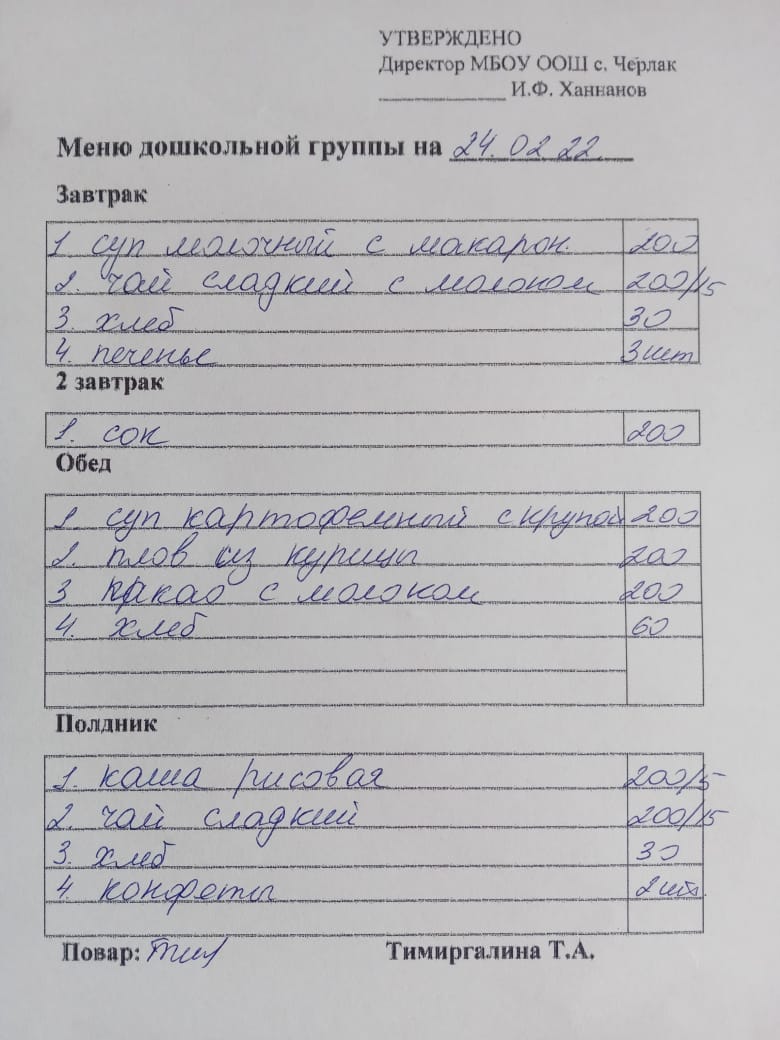 УТВЕРЖДЕНО
Директор МБОУ ООШ с. Черлак
____________ И.Ф. Ханнанов
Меню дошкольной группы на 24.02.22.
Завтрак
1 суп молочный с макарон. 200
2. чай сладкий с молоком 200/15
3. хлеб 30
4. печенье 3 шт
2 завтрак
1. сок 200
Обед
1. суп картофельный с крупой 200
2. плов из курицы 200
3 какао с молоком 200
4. хлеб 60
Полдник
1. каша рисовая 200/5
2. чай сладкий 200/15
3. хлеб 30
4. конфеты 2 шт.
Повар: Тимиргалина Т.А.